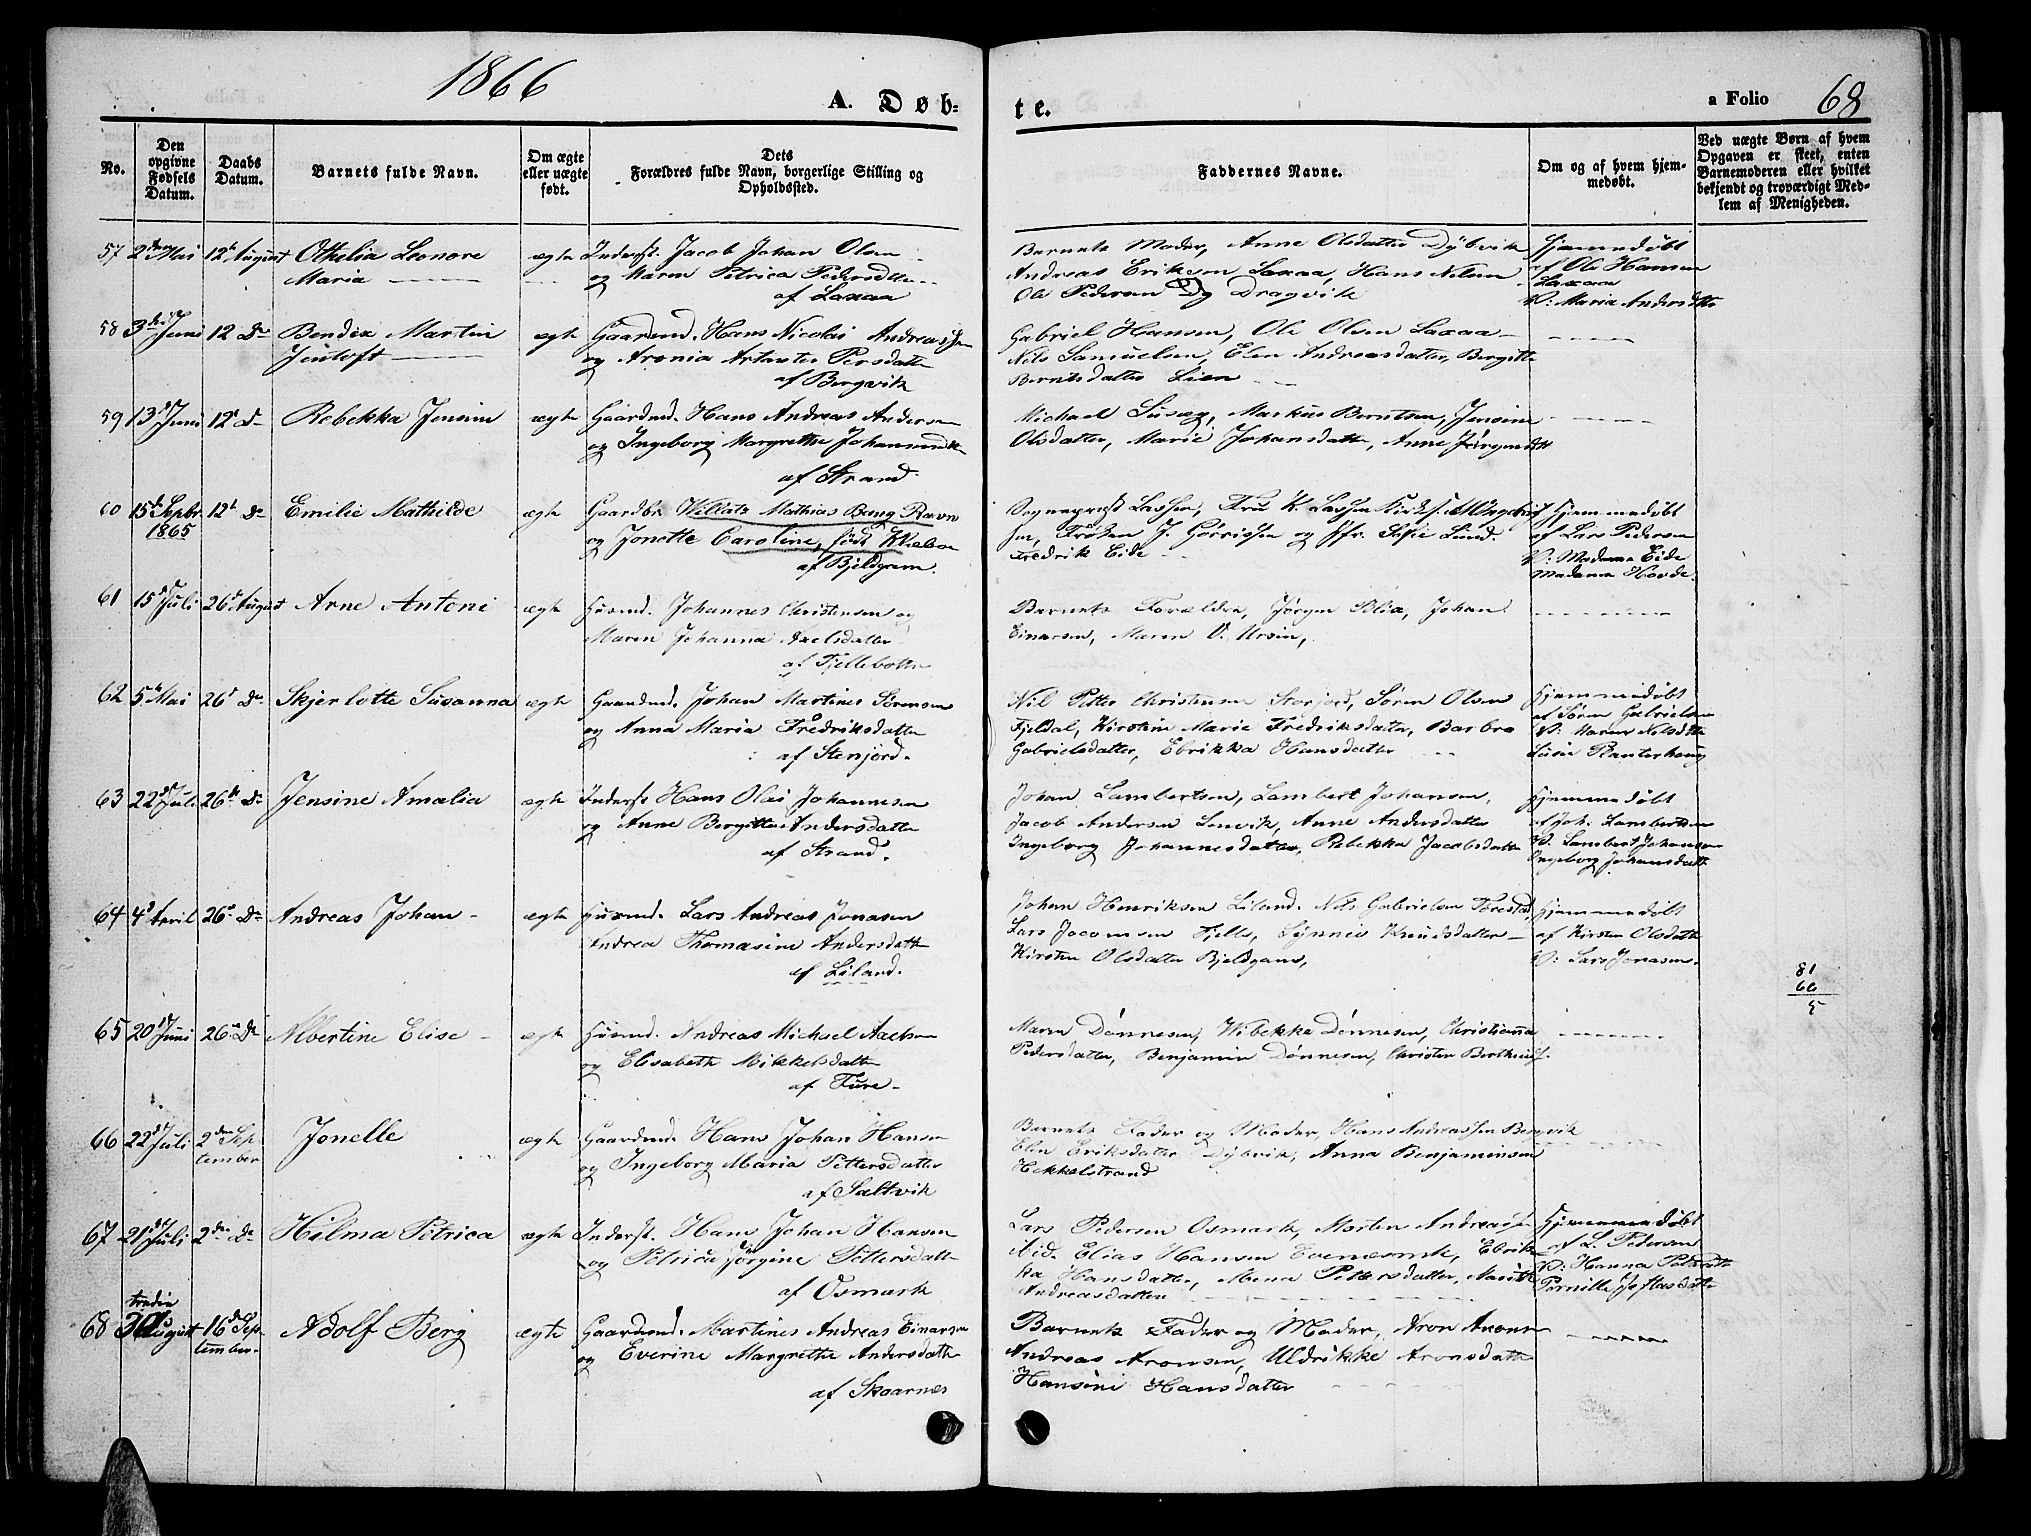 1866
A. Døb-
te.
a Folio 68
No.
Den opgivne Fødsels Datum.
Daabs Datum.
Barnets fulde Navn.
Om ægte eller uægte født.
Dets Forældres fulde Navn, borgerlige Stilling og Opholdssted.
Faddernes Navne.
Om og af hvem hjemmedøbt.
Ved uægte Børn af hvem Opgaven er skeet, enten Barnemoderen eller hvilket bekjendt og troværdigt Medlem af Menigheden.
57 2den Mai 12te August Othelia Leonore ægte Inderst. Jacob Johan Olsen
Maria og Maren Petrica Pedersdtr
af Laxaa
Barnets Moder, Anne Olsdatter Dybvik
Andreas Eriksen Laxaa, Hans Nilsen
Ole Pedersen Dragvik
Hjemmedøbt
af Ole Hansen
Laxaa
V: Maria Andersdtr
58 3die Juni 12 Do Bendix Martin ægte Gaardmd. Hans Nicolai Andreasen
Jentoft og Aronia Persdatter
af Bergvik
Gabriel Hansen, Ole Olsen Laxaa
Nils Samuelsen, Elen Andreasdatter, Bergitte
Berntsdatter Lien
59 13d Juni 12t Do Rebekka Jensine ægte Gaardmd. Hans Andreas Andersen
og Ingeborg Margrethe Johannesdtr
af Strand
Michael, Markus Berntsen, Jensine
Olsdatter, Marie Johansdatter, Anne Jørgensdtr
60 15d Septbr 1865 12t Do Emilie Mathilde ægte Gaardbr. Willatz Mathias Bang Ravn
og Jonette Caroline, født
af Bjeldgam.
Sogneprest Lassen, Fru K. Lassen
Frøken J. Gørrissen og Jfr. Sofie Lund
Fredrik Eide
Hjemmedøbt
af Lars Pedersen
V: Madame Eide
Madame Hovde
61 15d Juli 26d August Arne Antoni ægte Husmd. Johannes Christensen og
Maren Johanna Axelsdatter
af Fjellebotn
Barnets Forældre, Jørgen Blix, Johan
Einarsen, Maren V. Ursin,
62 5te Mai 26d Do Skjerlotte Susanna ægte Gaardmd. Johan Martines Sørensen
og Anna Maria Fredriksdatter
af Stenjord.
Nil Petter Christensen Storjord, Søren Olsen
Fjeldal, Kirstine Marie Fredriksdatter, Barbro
Gabrielsdatter, Ebrikka Hansdatter
Hjemmedøbt
af Søren Gabrielsen
V: Maren Nilsdtr
Susie Planterhaug
63 22d Juli 26d Do Jensine Amalia ægte Inderst Hans Olai Johannesen
og Anne Bergitte Andersdatter
af Strand.
Johan Lambertsen, Lambert Johansen,
Jacob Andersen Lenvik, Anne Andersdatter
Ingeborg Johannesdatter, Rebekka Jacobsdatter
Hjemmedøbt
af Joh. Lambertsen
V. Lambert Johansen
Ingeborg Johansdatter
64 4d April 26d Do Andreas Johan ægte Husmd. Lars Andreas Jonasen
Andrea Thomasine Andersdatter
af Liland.
Johan Henriksen Liland. Nils Gabrielsen
Lars Jacobsen Fjelle, Synnei Knudsdatter
Kirsten Olsdatter Bjeldgam,
Hjemmedøbt
af Kirsten Olsdatter
V: Lars Jonasen.
81
66
5
65 20d Juni 26d Do Albertine Elise ægte Husmd. Andreas Michael Axelsen
og Elisabeth Mikkelsdatter
af Fure
Maren Dønnesen, Wibekka Dønnesen, Christianna
Pedersdatter, Benjamin Dønnesen, Christen
66 22d Juli 2den September Jonelle ægte Gaardmd. Hans Johan Hansen
og Ingeborg Maria Pettersdatter
af Saltvik
Barnets Fader og Moder, Hans Andreassen Bergvik
Elen Eriksdatter Dybvik, Anna Benjaminsen
Hekkelstrand
67 21de Juli 2den Do Hilma Petrica ægte Inderst. Hans Johan Hansen
og Petrica Jørgine Pettersdatter
af Osmark
Lars Pedersen Osmark, Morten Andreasen
ibid. Elias Hansen Evenesmk, Ebrik-
ka Hansdatter, Mena Pettersdatter, Marith
Andreasdatter
Hjemmedøbt
af L. Pedersen
V: Hanna Petersdtr
Pernille
68 tredie 3die August 16d September Adolf Berg ægte Gaardmd. Martines Andreas Einarsen
og Everine Margrethe Andersdatter
af Skaarnes
Barnets Fader og Moder, Aron Aronsen
Andreas Aronsen, Uldrikke Aronsdatter
Hansine Hansdatter